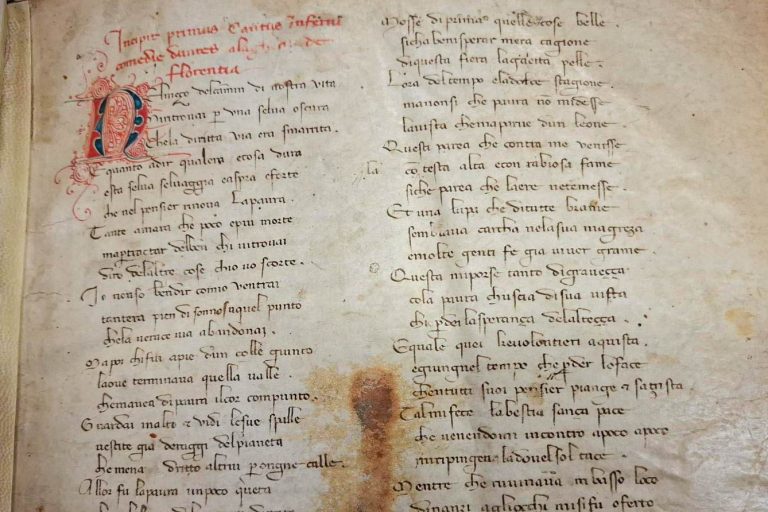 Incipit primus Cantus Inferni
comedie dantis alagherii de
florentia
Nelmeço delcamin di nostra vita
miritrouai per una selua oscura
chela diritta via era smarrita.
E quanto adir qualera ecosa dura
esta selua seluaggia easpra eforte
che nel pensier rinoua lapaura.
Tante amara che poco epiu morte
ma per trattar delben chi vitrouai
diro delaltre cose chio vo scorte.
Io nonso bendir comio ventrai
tantera pien di sonno aquel punto
chela verace via abandonai.
Ma poi chi fui apie dun colle giunto
laoue terminaua quella valle
chemauea dipaura ilcor compunto.
Guardai inalto & vidi lesue spalle
uestite gia deraggi delpianeta
chemena dritto altrui per ongne calle.
Allor fu lapaura unpoco queta
Mosse di prima quelle cose belle
sicha bensperar mera cagione
diquesta fiera lagaetta pelle.
Lora deltempo eladolce stagione
manonsi che paura no midesse
lauista chemaparue dun leone.
Questi parea che contra me venisse
la
co testa alta econ rabiosa fame
siche parea che laere netemesse.
Et una lupa che ditutte brame
sembiaua carcha nelasua magreza
emolte genti fe gia uiuer grame.
Questa miporse tanto digraueçça
cola paura chuscia disua uista
chi perdei lasperança delalteçça.
Equale quei keuolontieri aquista
egiungnel tempo che perder loface
chentutti suoi pensier piange & satrista
Talmi fece labestia sança pace
che uenendomi incontro apoco apoco
miripingea ladouel sol tace.
Mentre che ruuinaua in basso loco
dinançi agliocchi misifu oferto